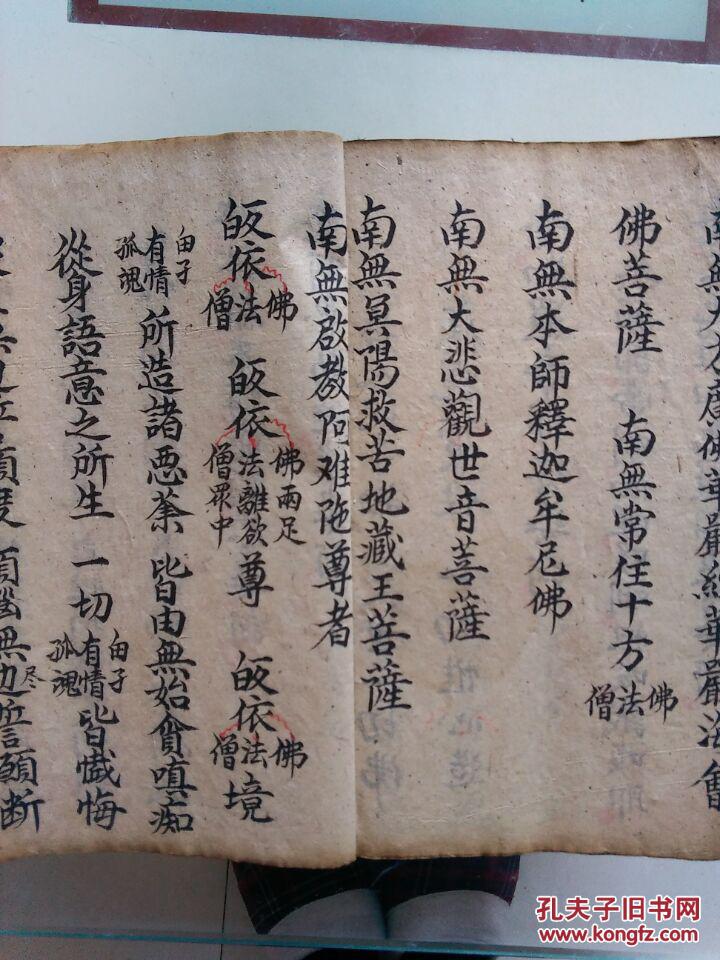 南無大方廣佛華嚴經華嚴海會
佛菩薩 南無常住十方佛法僧
南無本師釋迦牟尼佛
南無大悲觀世音菩薩
南無冥陽救苦地藏王菩薩
南無啟教阿难陁尊者
皈依佛法僧 皈依佛兩足法離欲僧眾中尊 皈依佛法僧境
由子有情孤魂所造諸惡業 皆由無始貪嗔痴
從身語意之所生 一切由子有情孤魂皆懺悔
無边誓願度 煩惱無边尽誓願断
孔夫子旧书网
www.kongfz.com